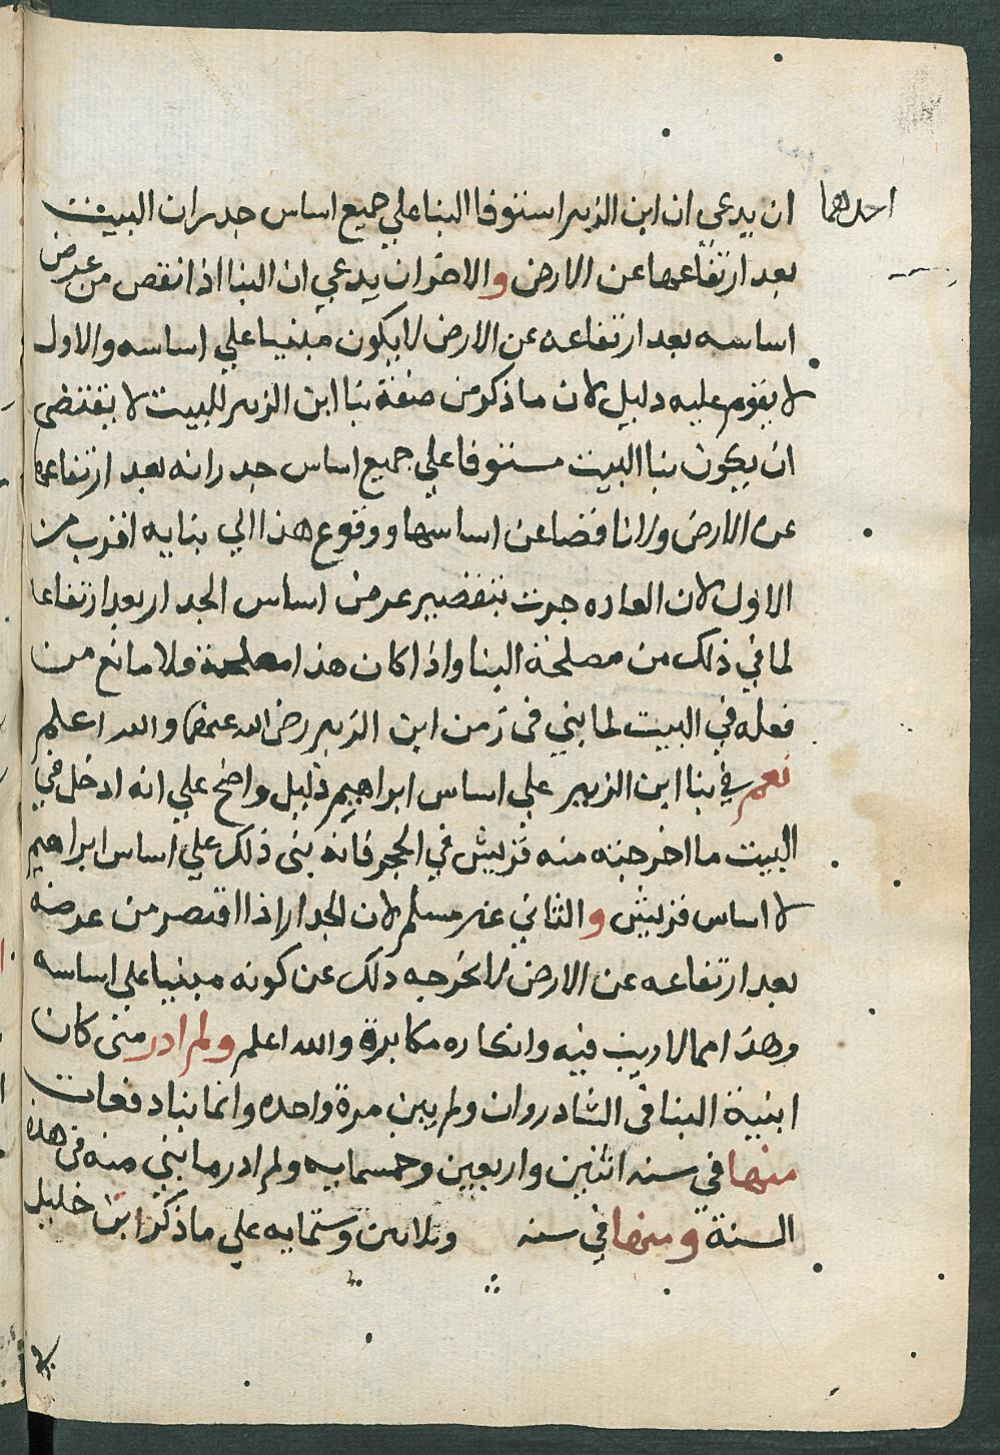 احدهما
ان يدعي ان ابن الزبير استوفا البنا علي جميع اساس جدران البيت
بعد ارتفاعها عن الارض والاخر ان يدعي ان البنا اذا نقص من عرض
اساسه بعد ارتفاعه عن الارض لا يكون مبنيا علي اساسه والاول
لا يقوم عليه دليل لان ما ذكر من صفة بنا ابن الزبير للبيت لا يقتضى
ان يكون بنا البيت مستوفا علي جميع اساس جدرانه بعد ارتفاعها
عن الارض ولا ناقضا عن اساسها ووقوع هذا الي بنايه اقرب من
الاول لان العاده جرت بتقصير عرض اساس الجدار بعد ارتفاعا
لما في ذلك من مصلحة البنا واذا كان هذا مصلحة فلا مانع من
فعله في البيت لما بني فى زمن ابن الزبير رضى الله عنهما والله اعلم
نعم في بنا ابن الزبير علي اساس ابراهيم دليل واضح علي انه ادخل في
البيت ما اخرجته منه قريش في الحجر فانه بنى ذلك علي اساس ابراهيم
لا اساس قريش والثاني غير مسلم لان الجدار اذا اقتصر من عرضه
بعد ارتفاعه عن الارض لا يخرجه ذلك عن كونه مبنيا علي اساسه
وهذا مما لا ريب فيه وانكاره مكابرة والله اعلم ولم ادر متى كان
ابنية البنا فى الشادروان ولم يبن مرة واحده وانما بنا دفعات
منها في سنه اثنين واربعين وخمسمايه ولم ادر ما بني منه فى هذه
السنة ومنها في سنه وثلاثين وستمايه علي ما ذكر ابن خليل